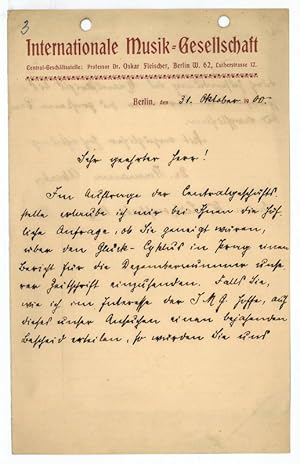 3
Internationale Musik=Gesellschaft
Central-Geschäftsstelle: Professor Dr. Oskar Fleischer, Berlin W. 62, Lutherstrasse 12.
Berlin, den 31. Oktober 1900.
Sehr geehrter Herr!
Im Auftrage der Centralgeschäfts
stelle erlaube ich mir bei Ihnen die höf
liche Anfrage, ob Sie geneigt wären,
über den Gluck-Cyklus in Prag einen
Bericht für die Dezembernummer unse
rer Zeitschrift einzusenden. Falls Sie,
wie ich im Interesse der I M G hoffe, auf
dieses unser Ansuchen einen bejahenden
Bescheid erteilen, so würden Sie uns